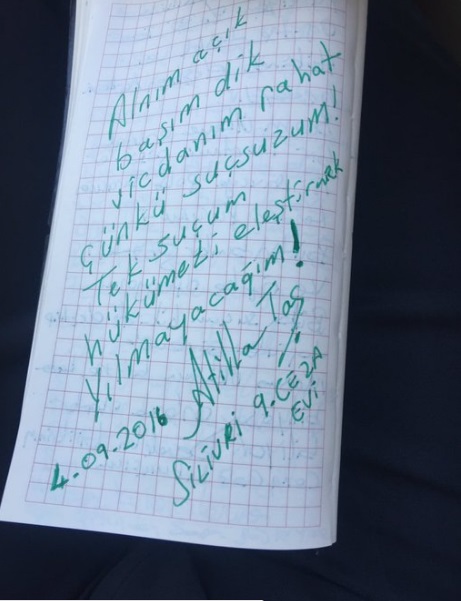 Alnım açık
başım dik
vicdanım rahat
çünkü suçsuzum!
Tek suçum
hükümeti eleştirmek
Yılmayacağım!
Atilla Taş
4.09.2016
SİLİVRİ 9.CEZA
EVİ